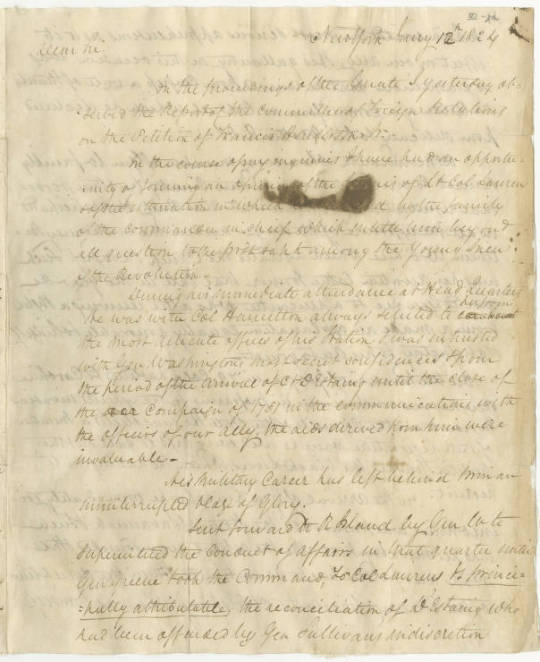 New York Jany 12th 1824
Dear Sir.
In the proceedings of the Senate I yesterday ob-
-served the Report of the Committee of Foreign Relations
on the Petition of Francis
In the course of my enquiries I have had an opportu-
-nity of forming an opinion of the of Lt Col Laurens
of the situation in which by the family
of the commander in chief which entitle him beyond
all question to the first rank among the Young Men
of the Revolution.
During his immediate attendance at Head Quarters
he was with Col Hamilton always selected to perform
the most delicate offices of his Station & was entrusted
with Gen Washingtons most secret confidences & from
the period of the arrival of Ct D'Estaing until the close of
the Campaign of 1781 in the communications with
the officers of our ally, the aids derived from him were
invaluable -
His Military Career has left behind him an
uninterrupted blaze of Glory.
Sent forward to R Island by Gen W to
superintend the Conduct of affairs in that quarter until
Gen Greene took the Command, To Col Laurens is princi-
-pally attributable, the reconciliation of D'Estaing who
had been offended by Gen Sullivans indiscretion